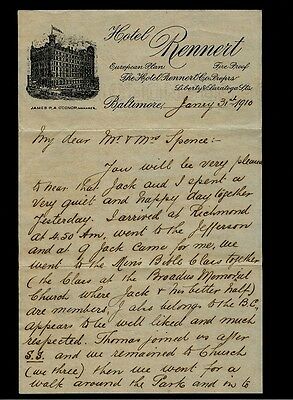 Hotel Rennert
European Plan Fire Proof
The Hotel Rennert Co. Propr's
Liberty & Saratoga Sts
JAMES P. A. O'CONOR, MANAGER.
Baltimore, Jany 31st 1910
My dear Mr & Mrs Spence:-
You will be very pleased
to hear that Jack and I spent a
very quiet and happy day together
Yesterday. I arrived at Richmond
at 4.50 Am, went to the Jefferson
and at 9 Jack came for me, we
went to the Mens Bible Class together
(the Class at the Broadus Memorial
Church where Jack & his better half)
are members, J also belongs to the B.C.,
appears to be well liked and much
respected. Thomas joined us after
S.S. and we remained to Church
(we three) then we went for a
walk around the Park and in to